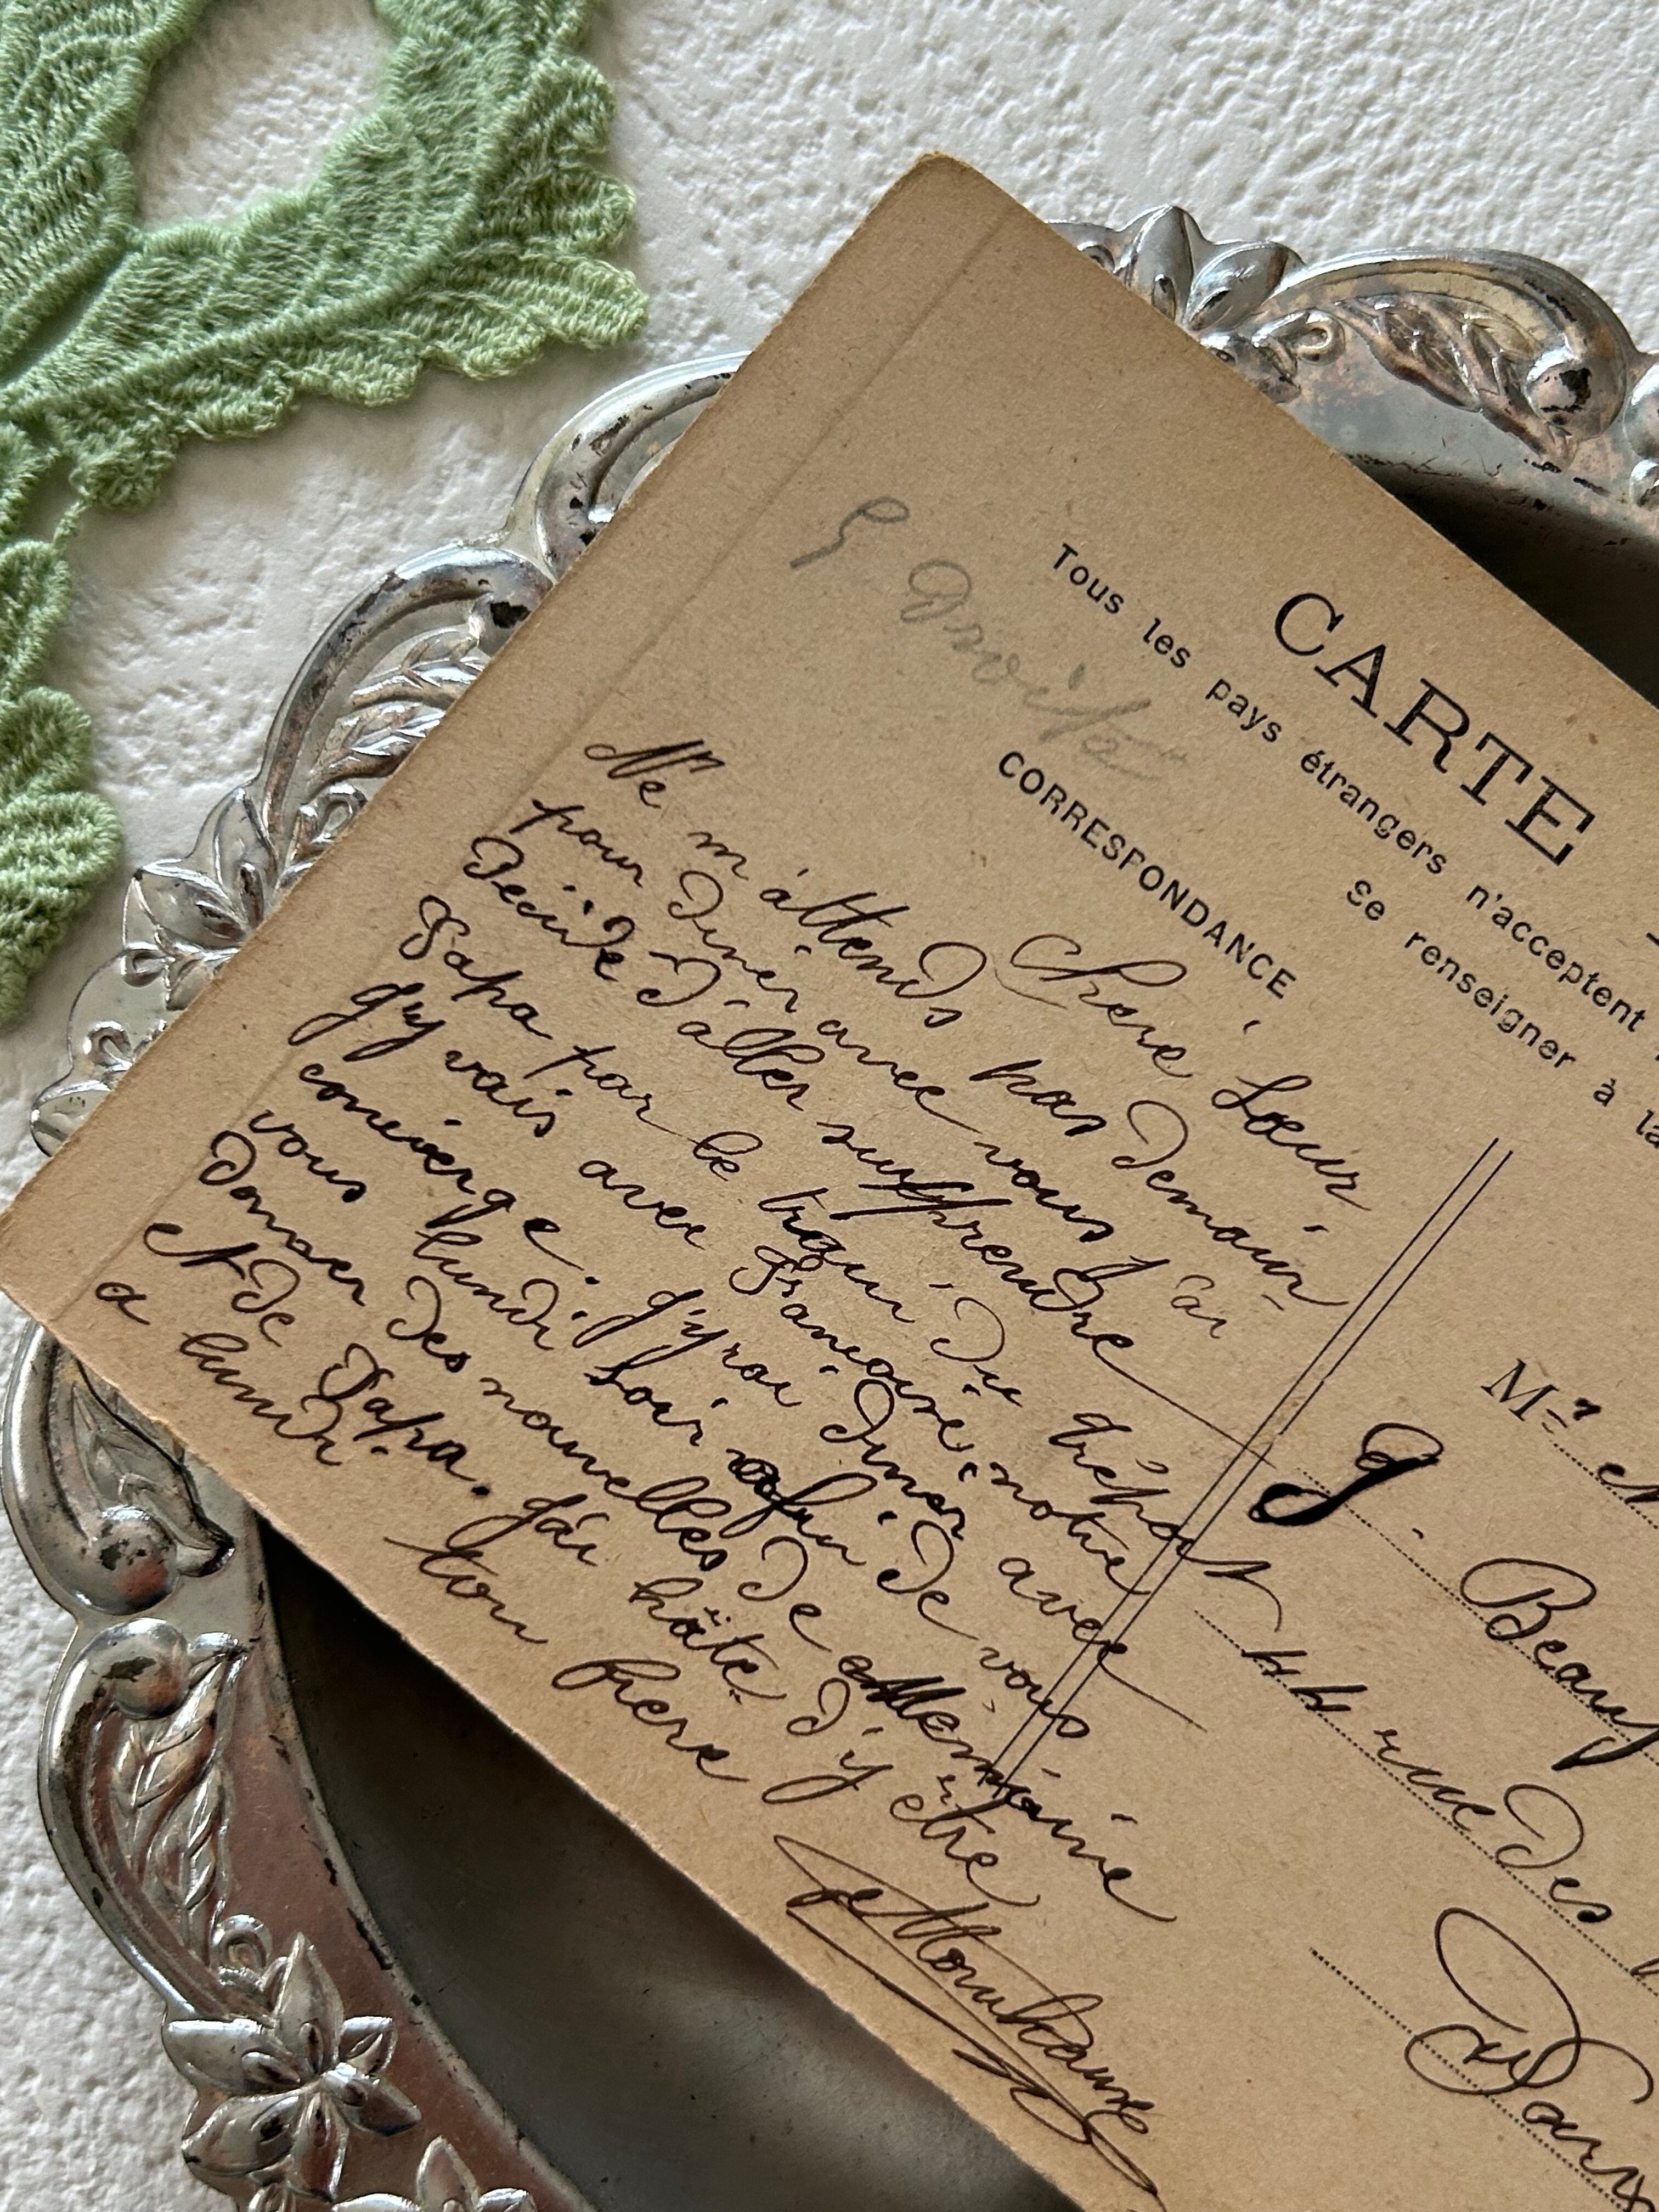 CARTE
Tous les pays étrangers n'acceptent
Se renseigner à la
CORRESPONDANCE
G droite
Chère Sœur,
Ne m'attends pas demain
pour diner avec vous j'ai
décidé d'aller surprendre
Papa par le train du tréport
J'y vais avec Françoise, notre
concierge. J'yrai diner avec
vous lundi soir afin de vous
donner des nouvelles de
et de Papa. J'ai hâte d'y être
a lundi
ton frere
Mr et
G. Beau
44 rue des
Paris